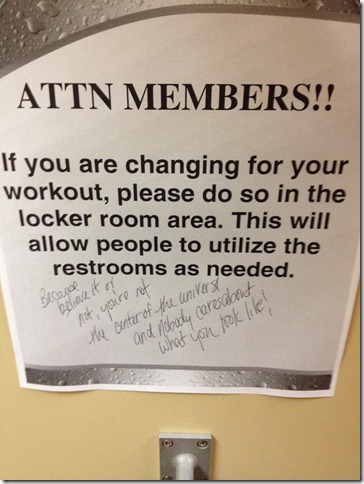 ATTN MEMBERS!!
If you are changing for your
workout, please do so in the
locker room area. This will
allow people to utilize the
restrooms as needed.
Because
believe it or
not, you're not
the center of the univers
and nobody cares about
what you look like!